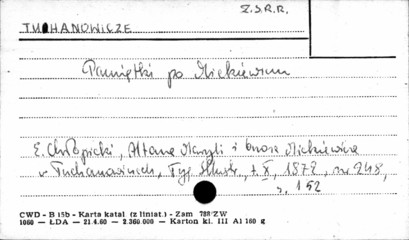 Z.S.R.R.
TUHANOWICZE
Pamiętki po Mickiewiczu
E. Chłopicki, Altana Maryli i brona Mickiewicza
w Tuchanowiczach, Tyg. Illustr., t. X, 1872, nr 248,
s. 152
CWD - B 15b - Karta katal. (z liniat.) - Zam 788/ZW
1060 - ŁDA - 21.4.60 - 2.360.000 - Karton kl. III A1 160 g